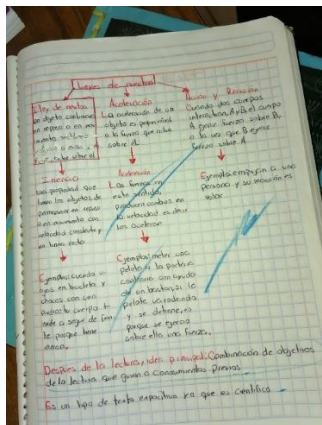 Leyes de newton
Ley de
Un objeto continuara
en reposo o en mo
sobre el
Aceleración
La aceleración de un
objeto es proporcional
a la fuerza que actua
sobre él
Acción y Reacción
Cuando dos cuerpos
interactuan, A y B, el cuerpo
A ejerce fuerza sobre B,
a la vez que B ejerce
fuerza sobre A
Inercia
propiedad que
los objetos de
permanecer en reposo
o en movimiento con
velocidad constante,
en linea recta
Aceleración
Las fuerzas en
este sentido,
producen cambios en
la velocidad es decir
los aceleran
Ejemplo: empujan a una
persona y su reacción es
Ejemplo: cuando
en bicicleta y
chocas con una
tu cuerpo ti
a seguir de
porque tiene
Ejemplo: meter una
pelota a la porteria
la
pelota va rodando
y se detiene, es
porque se ejerció
sobre ella una fuerza.
Después de la lectura, idea principal: Combinación de objetivos
de la lectura que guian a conocimientos previos
Es un tipo de texto expositivo ya que es científico